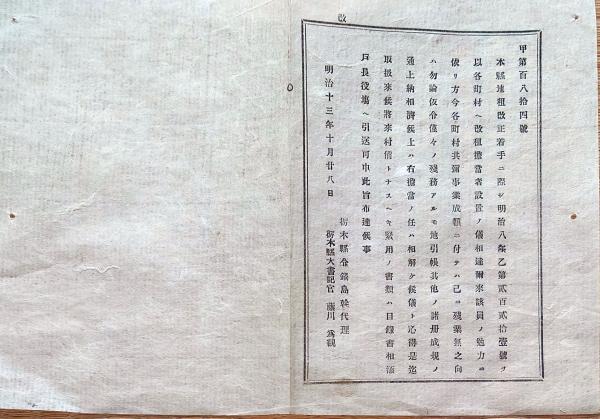 改
甲第百八拾四號
本縣地租改正着手ニ際シ明治八年乙第貳百貳拾壹號ヲ
以各町村ヘ改租擔當者設置ノ儀相達爾來該員ノ勉力ニ
依リ方今各町村共彌事業成頓ニ付テハ已ニ殘業無之向
ハ勿論仮令僅々ノ殘務アルモ地引帳其他ノ諸册成規ノ
通上納相濟候上ハ右擔當ノ任ハ相解ケ候儀ト心得是迄
取扱來候將來村備トナスヘキ緊用ノ書類ハ目録書相添
戸長役場ヘ引送可申此旨布達候事
明治十三年十月廿八日
栃木縣令鍋島幹代理
栃木縣大書記官 藤川爲親